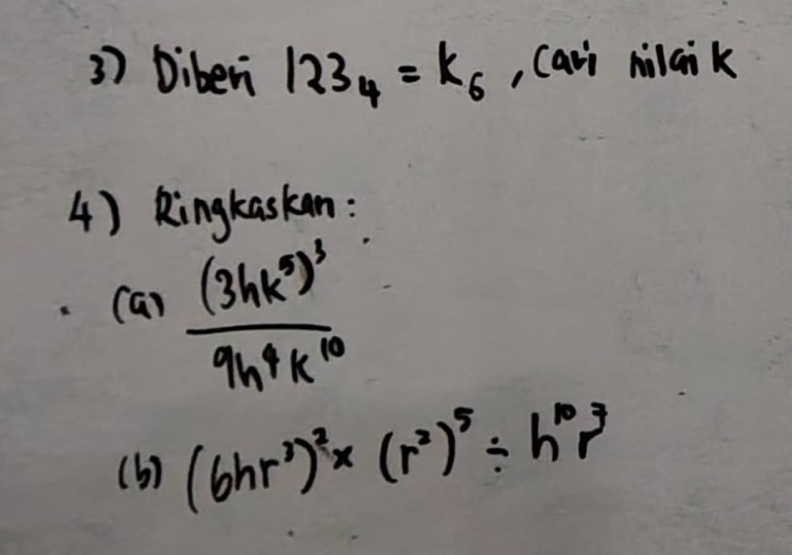 3) Diberi 123₄ = k₆, cari nilai k
4) Ringkaskan:
(a) (3hk⁵)³
9h⁴k¹⁰
(b) (6hr³)² × (r²)⁵ ÷ h¹⁰r⁷